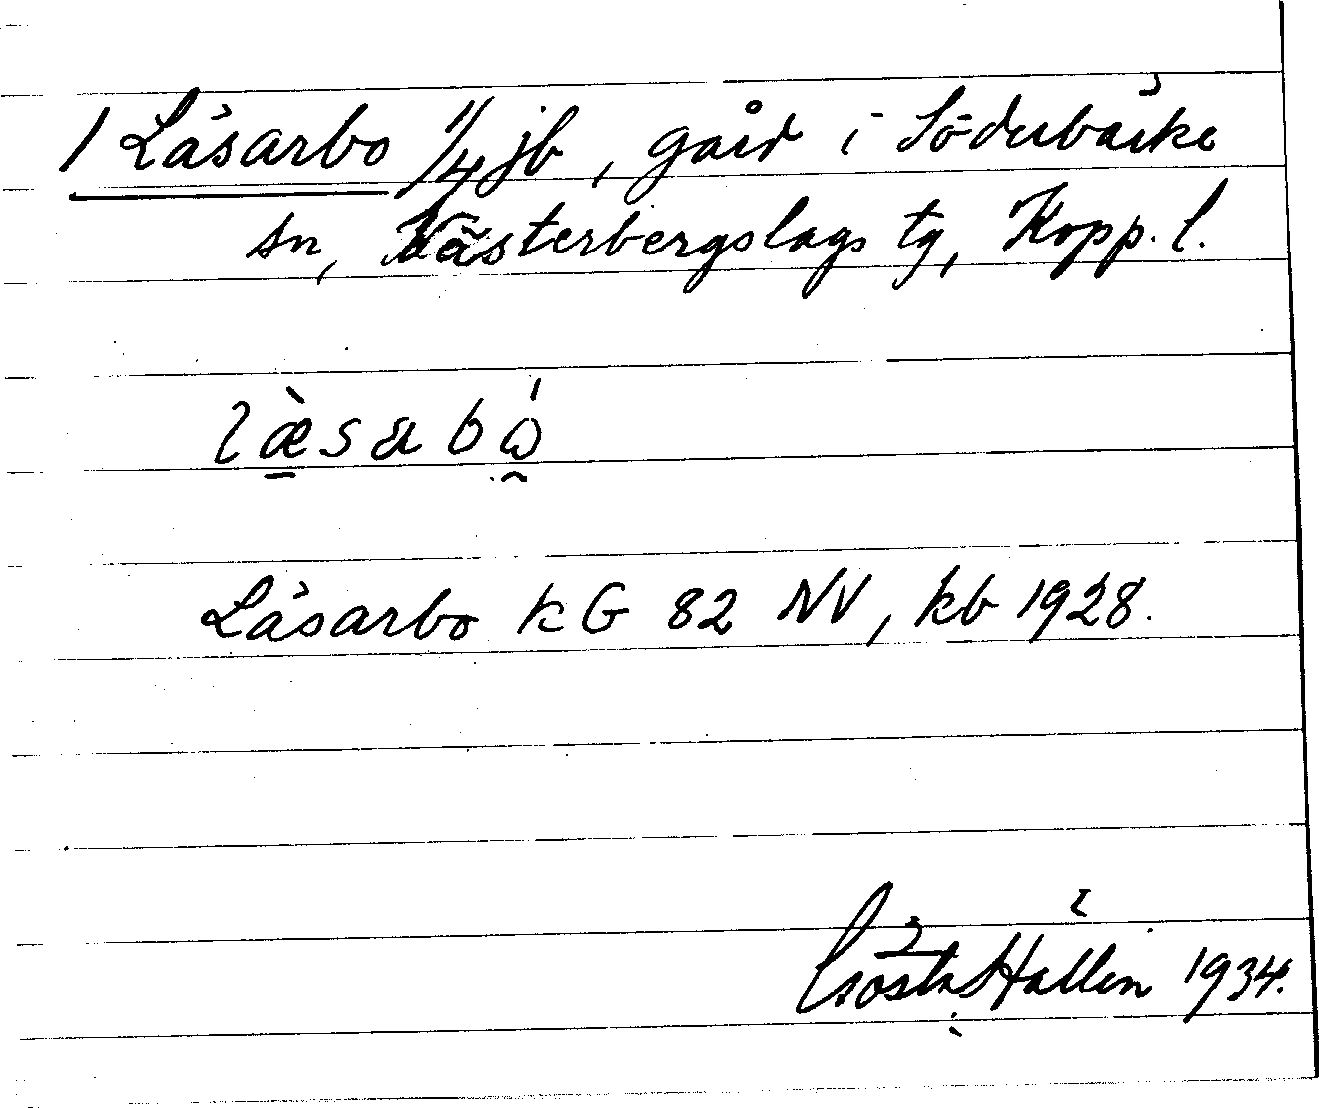 1 Läsarbo 1/4 jb, gård i Söderbärke
sn, Västerbergslags tg, Kopp. l.
læ̀sabó
Läsarbo kG 82 NV, kb 1928.
Gösta Hallin 1934.